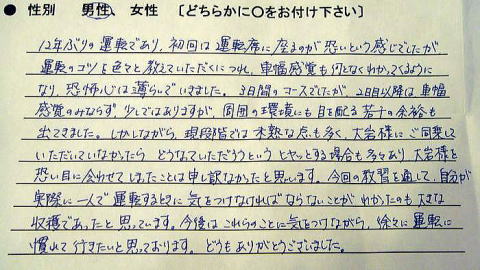 ● 性別 男性、女性 〔どちらかに○をお付け下さい〕
12年ぶりの運転であり、初回は運転席に座るのが恐いという感じでしたが
運転のコツを色々と教えていただくにつれ、車幅感覚も何となくわかってくるように
なり、恐怖心は薄らいでいきました。3日間のコースでしたが、2日目以降は車幅
感覚のみならず、少しではありますが、周囲の環境にも目を配る若干の余裕も
出てきました。しかしながら、現段階では未熟な点も多く、大岩様にご同乗して
いただいていなかったら どうなっていただろうという ヒヤッとする場合も多々あり 大岩様を
恐い目に会わせてしまったことは申し訳なかったと思います。今回の教習を通して、自分が
実際に一人で運転するときに 気をつけなければならないことが わかったのも大きな
収穫であったと思っています。今後はこれらのことに気をつけながら、徐々に運転に
慣れて行きたいと思っております。どうもありがとうございました。